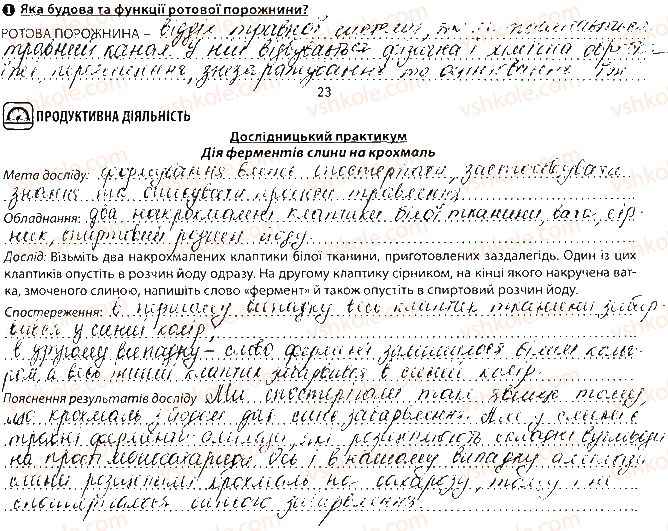 1 Яка будова та функції ротової порожнини?
РОТОВА ПОРОЖНИНА – відділ травної системи, та з
травний канал. У ній відбувається фізична і хімічна оброб-
їжі, перетравлення, знезаражування та їжі
23
ПРОДУКТИВНА ДІЯЛЬНІСТЬ
Дослідницький практикум
Дія ферментів слини на крохмаль
Мета досліду: формування вмінь спостерігати, застосовувати
знання та описувати процеси травлення.
Обладнання: два накрохмалені клаптики білої тканини, вата, сір-
ник, спиртовий розчин йоду.
Дослід: Візьміть два накрохмалених клаптики білої тканини, приготовлених заздалегідь. Один із цих
клаптиків опустіть в розчин йоду одразу. На другому клаптику сірником, на кінці якого накручена ват-
ка, змоченого слиною, напишіть слово «фермент» й також опустіть в спиртовий розчин йоду.
Спостереження: в першому випадку весь клаптик тканини забар-
вився у синій колір,
в другому випадку – слово фермент залишилося білим кольо-
ром, а весь інший клаптик забарвився в синій колір.
Пояснення результатів досліду Ми спостерігали таке явище тому,
що крохмаль з йодом дає синє забарвлення. Але у слині є
травні ферменти амілази, які розщеплюють складні вуглеводи
на прості моносахариди. Ось і в нашому випадку амілази
слини розщепили крохмаль на сахарозу, тому і не
спостерігалося синього забарвлення.
vshkole.com